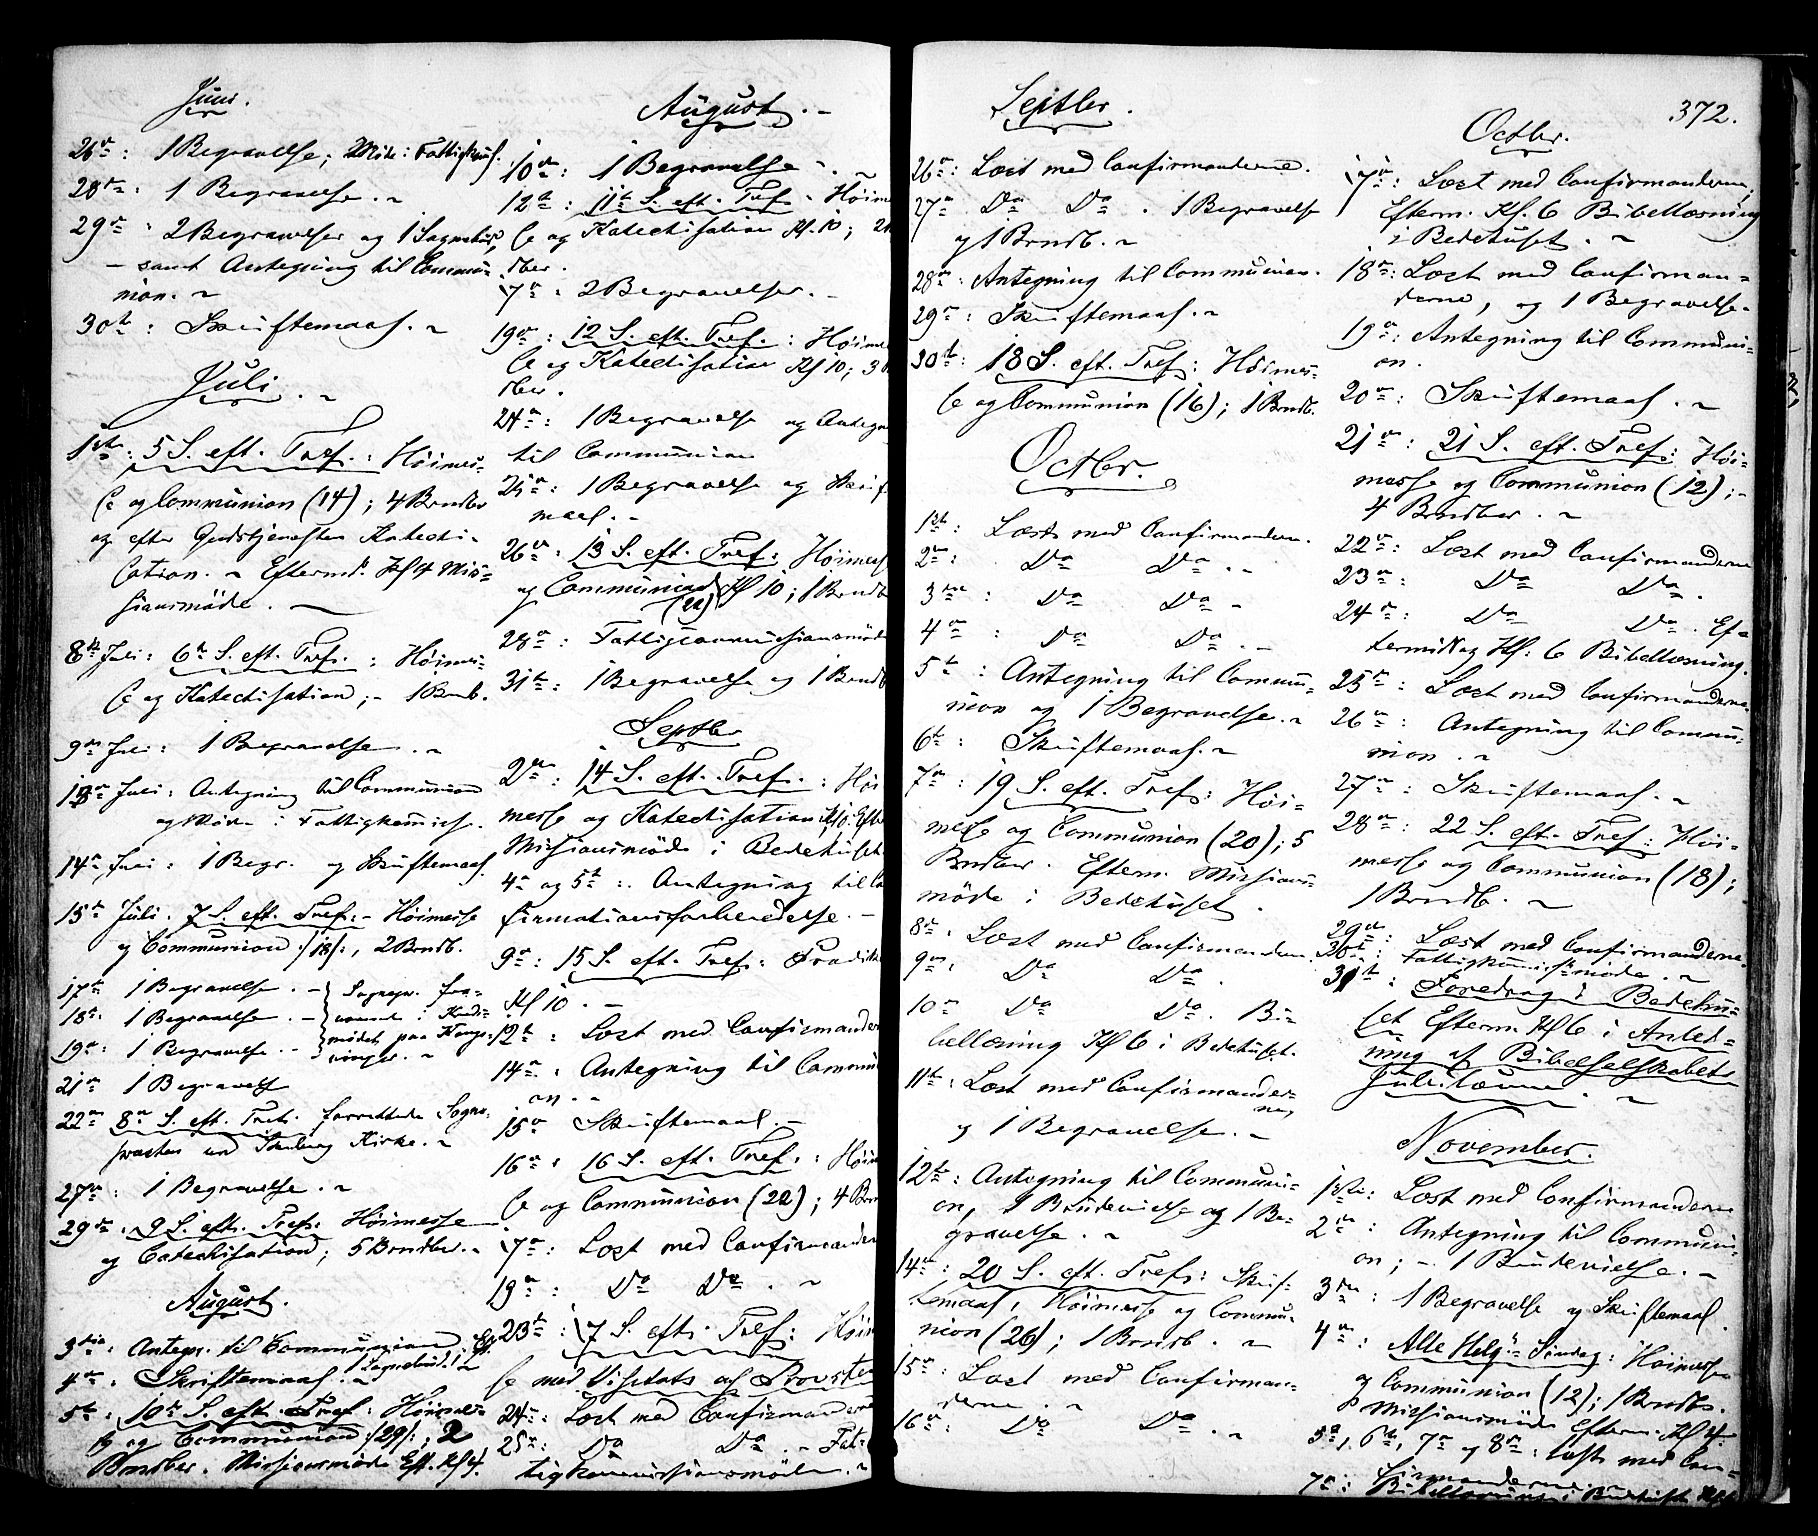 Juni.
26de: 1 Begravelse; Möde: Fattigkms.
28de: 1 Begravelse. ~
29de: 2 Begravelser og 1 Sognebud,
– samt Antegning til Commu-
nion. ~
30te: Skriftemaal. ~
Juli. ~
1ste: 5 S. eft. Tref.: Höimes-
se og Communion (14); 4 Brndbr
og efter Gudstjenesten Katechi-
sation. ~ Efterm. Kl 4 Mis-
sionsmöde. ~
8de Juli: 6te S. eft. Tref.: Höimes-
se og Katechisation; – 1 Brnb.
9de Juli: 1 Begravelse. ~
13de Juli: Antegning til Communion
og Möde i Fattigkommiss.
14de Juli: 1 Begr. og Skriftemaal.
15de Juli. 7 S. eft. Tref: – Höimesse
og Communion /:18/:, 2 Brndb.
17de 1 Begravelse. – Sognepr. fra-
18de: 1 Begravelse. –
19de: 1 Begravelse. – mödet paa Kongs-
vinger. ~
21de 1 Begravelse
22de 8de S. eft. Tref. forrettede Sogne-
præsten ved Kirke. ~
27de: 1 Begravelse. ~
29de: 9 S. eft. Tref: Höimesse
og Catechisation; 5 Brndbr. ~
August.
3die: Antegn. til Communion,
4de: Skriftemaal. ~ 1 Sognebud.
5te: 10de S. eft. Tref: Höimes-
se og Communion /:29/:, 2
Brndbr. Missionsmöde Eft. Kl 4.
August. –
10de: 1 Begravelse. ~
12te: 11te S. eft. Tref. Höimes
se og Katechisation Kl. 10; 2
dber.
17de: 2 Begravelser. –
19de: 12 S. eft. Tref.: Höimes
se og Katechisation Kl 10; 3
dber.
24de: 1 Begravelse og Antegn
til Communion
25de: 1 Begravelse og Skrif
maal. –
26de: 13 S. eft. Tref: Höimess
og Communion (22) Kl 10; 1 Brndb
28de: Fattigcommissionsmöde
31te: 1 Begravelse og 1 Brndb
Septbr
2den: 14 S. eft. Tref.: Höi
messe og Katechisation Kl 10. Eft
Missionsmöde i Bedehuset.
4de og 5te: Antegning til Co
firmationsforberedelse. –
9de: 15 S. eft. Tref: Prædike
Kl 10. –
12te: Læst med Confirmander
14de: Antegning til Commun
on. –
15de Skriftemaal. –
16de: 16 S. eft. Tref.: Höim
se og Communion (22); 4 Brn
17de: Læst med Confirmander
19de: Do Do. ~
23de: 17 S. eft. Tref: Höim
se med Visitats af Provsten
24de: Læst med Confirmanderne
25de: Do Do. ~ Fat-
tigkommissionsmöde. ~
Septbr.
26de: Læst med Confirmanderne.
27de Do Do. 1 Begravelse
og 1 Brndb. ~
28de: Antegning til Communion.
29de: Skriftemaal. ~
30te: 18 S. eft. Tref: Höimes-
se og Communion (16); 1 Brndb.
Octbr.
1ste: Læst med Confirmandern.
2den: Do Do. ~
3die: Do Do. ~
4de: Do Do. –
5te: Antegning til Commu-
nion og 1 Begravelse. ~
6te: Skriftemaal. ~
7de: 19 S. eft. Tref: Höi-
messe og Communion (20); 5
Brndbr. Efterm. Missions-
möde i Bedehuset.
8de: Læst med Confirmandern.
9de: Do Do.
10de Do Do. Bi-
bellæsning Kl 6 i Bedehuset.
11te: Læst med Confirmander-
ne,
og 1 Begravelse. ~
12te: Antegning til Communi-
on, 1 Brudevielse og 1 Be-
gravelse. ~
14de: 20 S. eft. Tref: Skrif-
temaal, Höimesse og Commu-
nion (26); 1 Brndb. ~
15de: Læst med Confirman-
derne. ~
16de: Do Do. ~
372.
Octbr.
17de: Læst med Confirmanderne,
Efterm. Kl. 6 Bibellæsning
i Bedehuset. ~
18de: Læst med Confirman-
derne, og 1 Begravelse.
19de: Antegning til Communi-
on.
20de: Skriftemaal. ~
21de: 21 S. eft. Tref: Höi-
messe og Communion (12); –
4 Brndbr. ~
22de: Læst med Confirmanderne
23de: Do Do.
24de: Do Do. Ef-
termiddag Kl: 6 Bibellæsning.
25de: Læst med Confirmanderne.
26de: Antegning til Commu-
nion. ~
27de: Skriftemaal. ~
28de: 22 S. eft. Tref: Höi-
messe og Communion (18);
1 Brndb. ~
29de: Læst med Confirmanderne.
30te: Fattigkommissmöde. ~
31te: Foredrag i Bedehu-
set Efterm. Kl 6 i Anled-
ning af Bibelselskabets
Jubilæum. ~
November.
1ste: Læst med Confirmanderne
2den: Antegning til Communi-
on; – 1 Brudevielse. ~
3die: 1 Begravelse og Skriftemaal.
4de: Alle Helg. Söndag: Höimesse
og Communion (12); 1 Brndb.
Missionsmöde Efterm. Kl 4.
5te, 6te, 7de og 8de: læst med Con-
firmanderne. ~
7de: Bibellæsning i Bedehuset